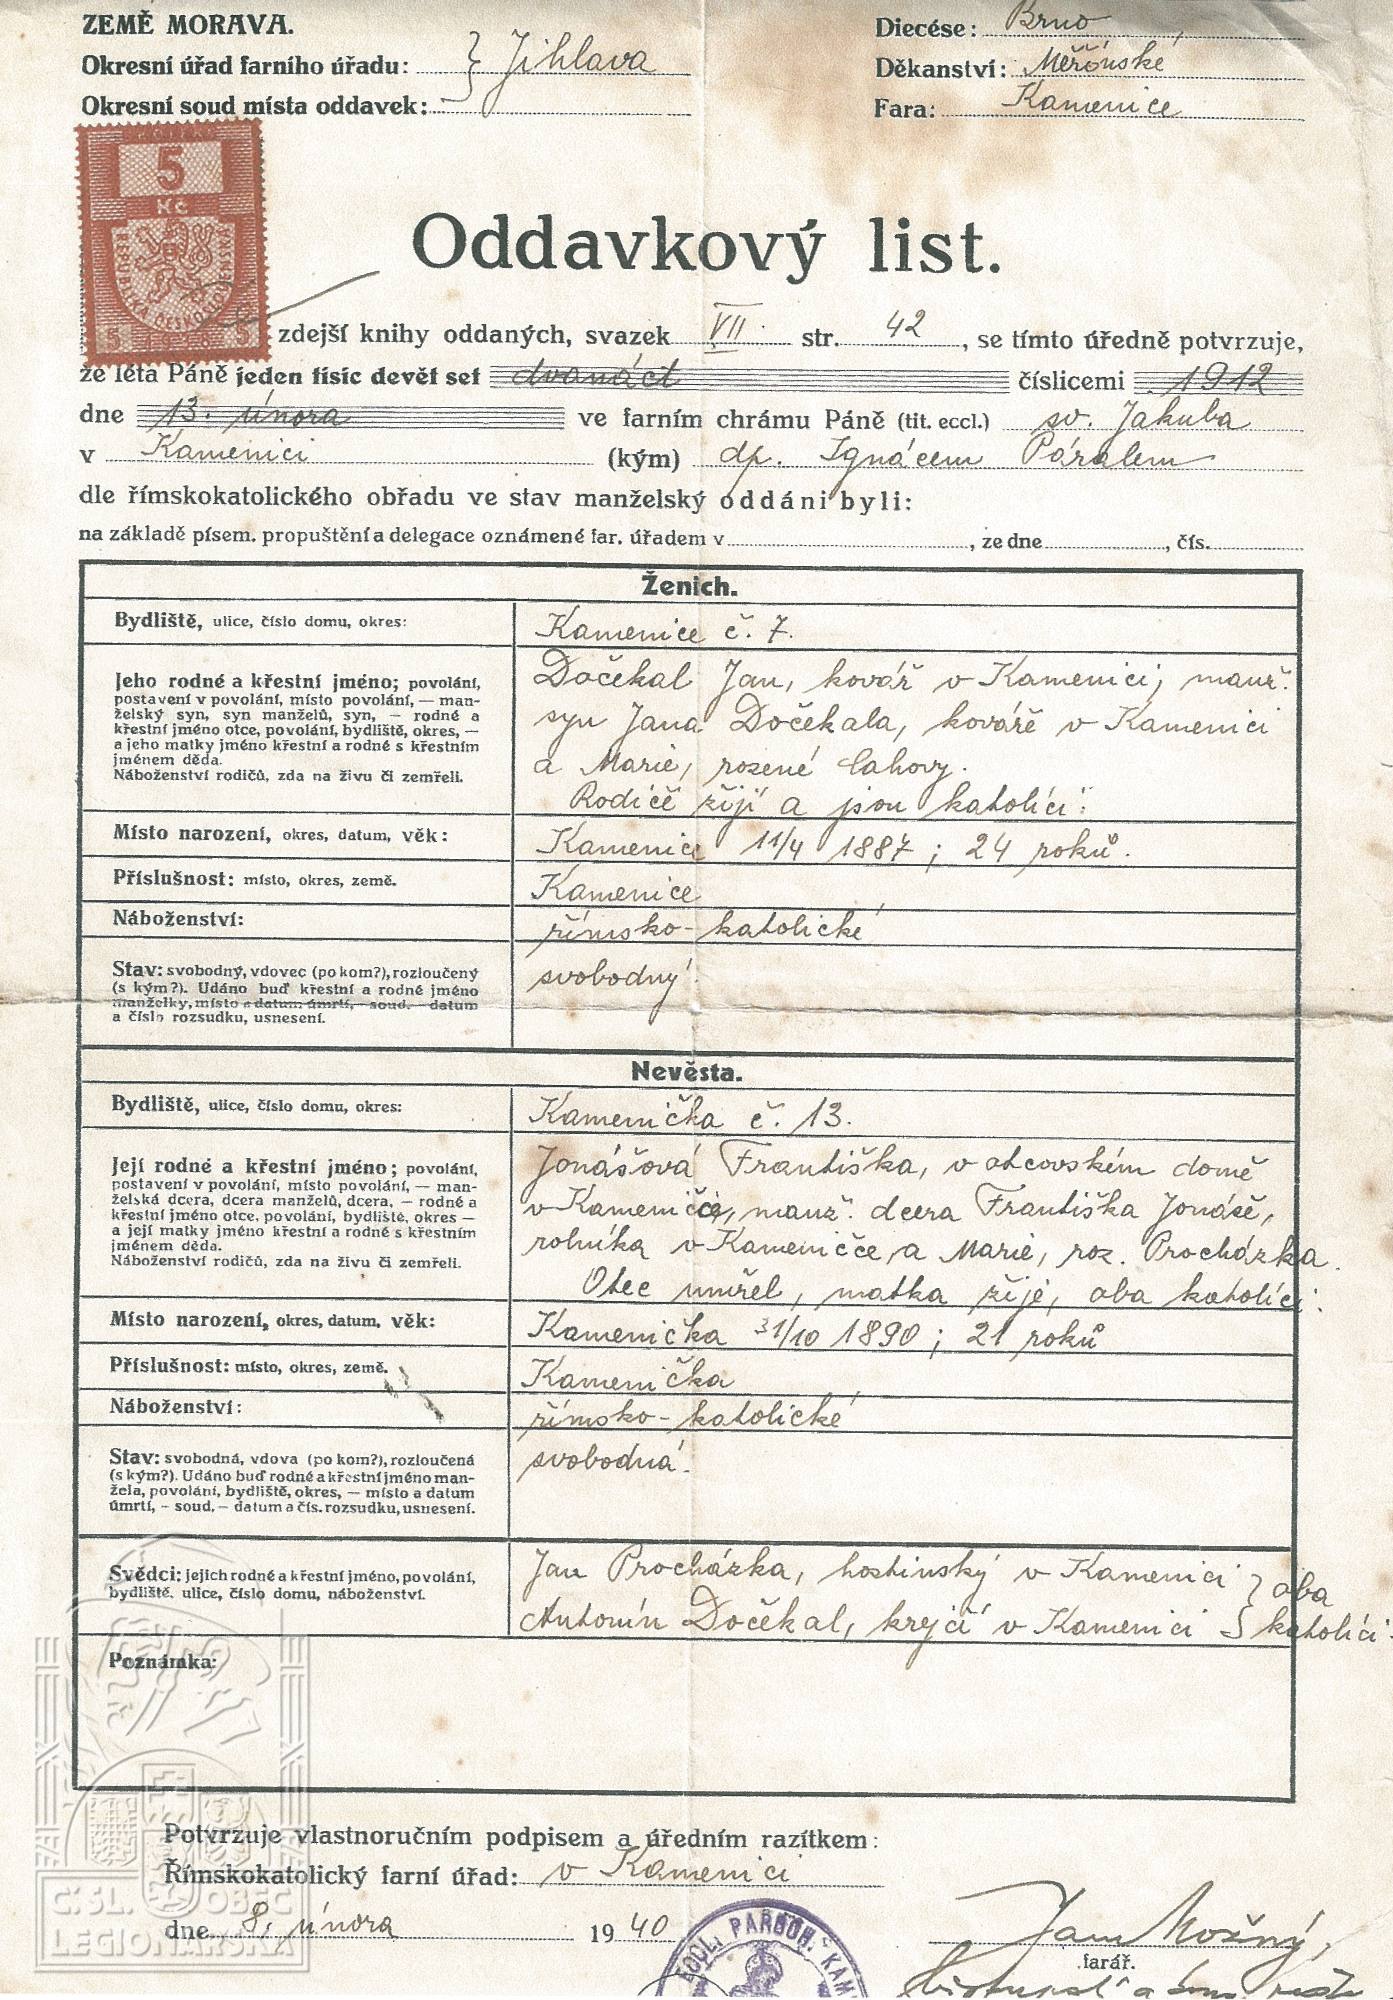 ZEMĚ MORAVA.
Okresní úřad farního úřadu: } Jihlava
Okresní soud místa oddavek:
Diecése: Brno
Děkanství: Měřínské
Fara: Kamenice
5
Kč
REPUBLIKA ČESKOSLOVENSKÁ
5 5
Oddavkový list.
zdejší knihy oddaných, svazek VII. str. 42, se tímto úředně potvrzuje,
že léta Páně jeden tisíc devět set dvanáct číslicemi 1912
dne 13. února ve farním chrámu Páně (tit. eccl.) sv. Jakuba
v Kamenici (kým) dp. Ignácem Páralem
dle římskokatolického obřadu ve stav manželský oddáni byli:
na základě písem. propuštění a delegace oznámené far. úřadem v , ze dne , čís.
Ženich.
Bydliště, ulice, číslo domu, okres:
Kamenice č. 7.
Jeho rodné a křestní jméno; povolání,
postavení v povolání, místo povolání, — man-
želský syn, syn manželů, syn, — rodné a
křestní jméno otce, povolání, bydliště, okres, —
a jeho matky jméno křestní a rodné s křestním
jménem děda.
Náboženství rodičů, zda na živu či zemřeli.
Dočekal Jan, kovář v Kamenici, manž.
syn Jana Dočekala, kováře v Kamenici
a Marie, rozené Cahovy.
Rodiče žijí a jsou katolíci.
Místo narození, okres, datum, věk:
Kamenice 11/4 1887; 24 roků.
Příslušnost: místo, okres, země.
Kamenice
Náboženství:
římsko-katolické
Stav: svobodný, vdovec (po kom?), rozloučený
(s kým?). Udáno buď křestní a rodné jméno
manželky, místo a datum úmrtí, — soud. — datum
a číslo rozsudku, usnesení.
svobodný.
Nevěsta.
Bydliště, ulice, číslo domu, okres:
Kamenička č. 13.
Její rodné a křestní jméno; povolání,
postavení v povolání, místo povolání, — man-
želská dcera, dcera manželů, dcera, — rodné a
křestní jméno otce, povolání, bydliště, okres —
a její matky jméno křestní a rodné s křestním
jménem děda.
Náboženství rodičů, zda na živu či zemřeli.
Jonášová Františka, v otcovském domě
v Kameničce, manž. dcera Františka Jonáše,
rolníka v Kameničce, a Marie, roz. Procházka.
Otec umřel, matka žije, oba katolíci.
Místo narození, okres, datum, věk:
Kamenička 31/10 1890; 21 roků
Příslušnost: místo, okres, země.
Kamenička
Náboženství:
římsko-katolické
Stav: svobodná, vdova (po kom?), rozloučená
(s kým?). Udáno buď rodné a křestní jméno man-
žela, povolání, bydliště, okres, — místo a datum
úmrtí, — soud, — datum a čís. rozsudku, usnesení.
svobodná.
Svědci: jejich rodné a křestní jméno, povolání,
bydliště, ulice, číslo domu, náboženství.
Jan Procházka, hostinský v Kamenici } oba
Antonín Dočekal, krejčí v Kamenici } katolíci.
Poznámka:
Potvrzuje vlastnoručním podpisem a úředním razítkem:
Římskokatolický farní úřad: v Kamenici
dne 8. února 1940
ECCL. PAROCH. KAM
Jan Možný,
farář.
Č.SL. OBEC
LEGIONÁŘSKÁ